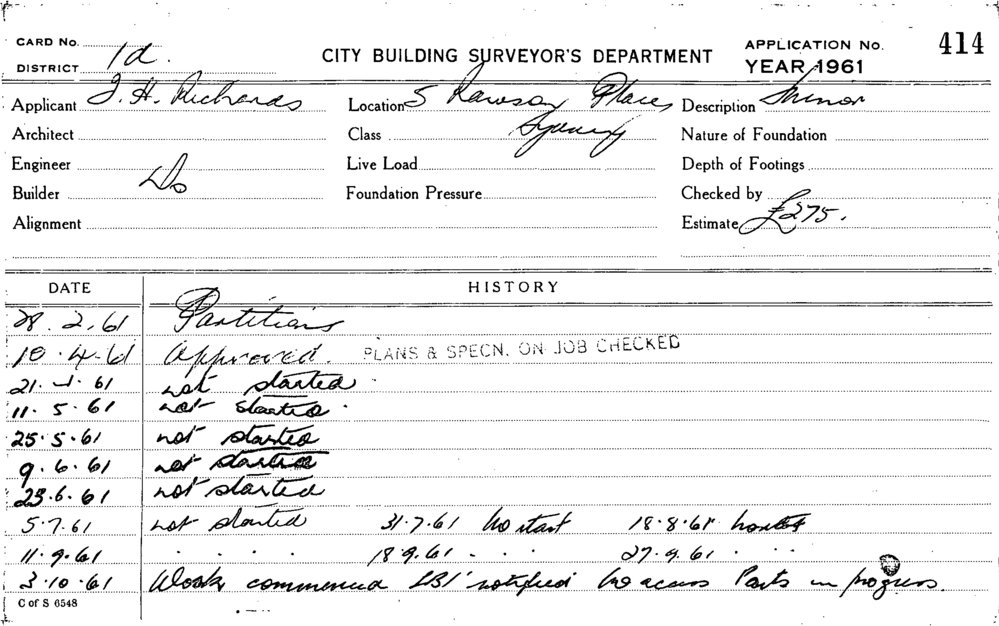 CARD No. 1d. CITY BUILDING SURVEYOR'S DEPARTMENT APPLICATION No. 414
DISTRICT YEAR 1961
Applicant J. H. Richards Location 5 Rawson Place, Description Minor
Architect Class Sydney Nature of Foundation
Engineer Live Load Depth of Footings
Builder Do Foundation Pressure Checked by
Alignment Estimate £275.
DATE HISTORY
28.2.61 Partitions
10.4.61 Approved. PLANS & SPECN. ON JOB CHECKED
21.4.61 not started
11.5.61 not started.
25.5.61 not started
9.6.61 not started
23.6.61 not started
5.7.61 not started 31.7.61 No start 18.8.61 no start
11.9.61 . . . . 18.9.61 . . . 27.9.61 . . .
3.10.61 Work commenced LBI notified No access Parts in progress.
C of S 6548